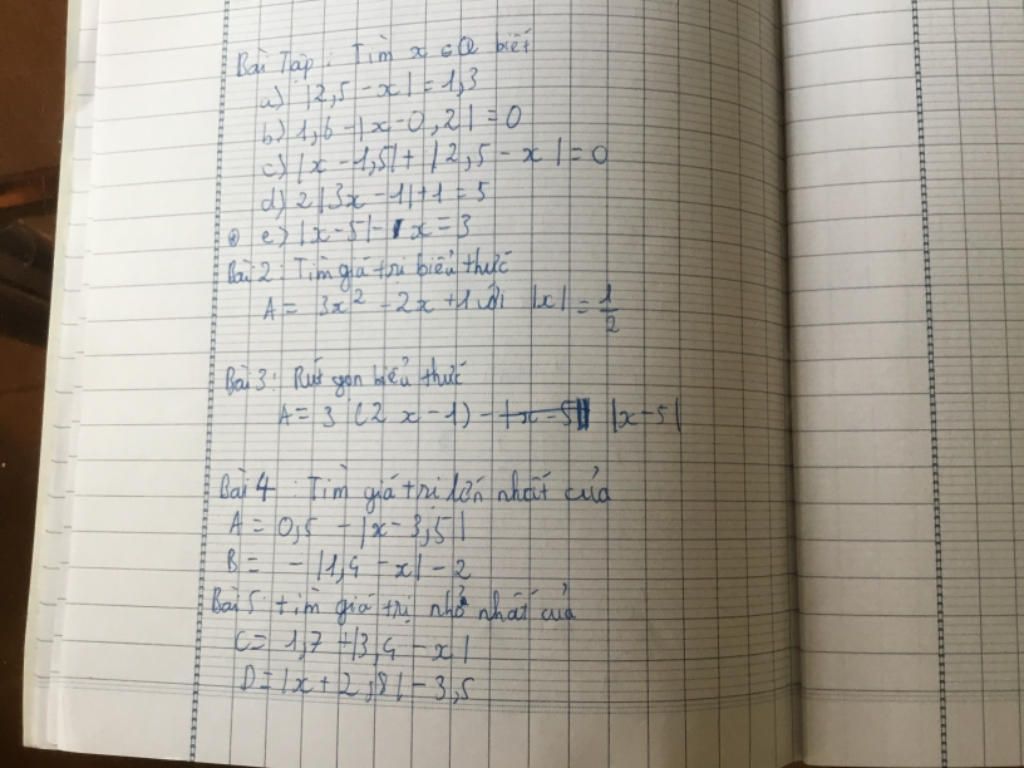 Bài Tập : Tìm x ∈ Q biết
a) |2,5 - x| = 1,3
b) 1,6 - |x - 0,2| = 0
c) |x - 1,5| + |2,5 - x| = 0
d) 2|3x - 1| + 1 = 5
e) |x - 5| - x = 3
Bài 2 : Tìm giá trị biểu thức
A = 3x² - 2x + 1 với |x| = 1/2
Bài 3 : Rút gọn biểu thức
A = 3 (2x - 1) - |x - 5|
Bài 4 : Tìm giá trị lớn nhất của
A = 0,5 - |x - 3,5|
B = - |1,4 - x| - 2
Bài 5 : tìm giá trị nhỏ nhất của
C = 1,7 + |3,4 - x|
D = |x + 2,8| - 3,5